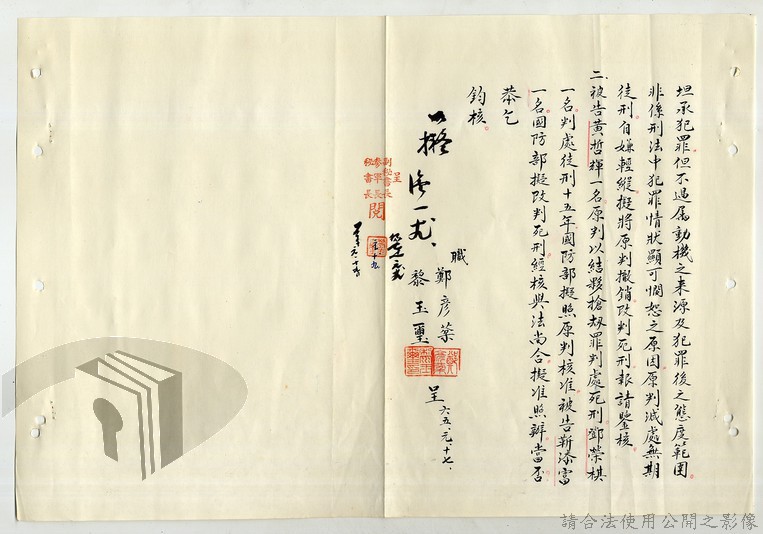 坦承犯罪但不過屬動機之來源及犯罪後之態度範圍
非係刑法中犯罪情狀顯可憫恕之原因原判減處無期
徒刑自嫌輕縱擬將原判撤銷改判死刑報請鑒核
二、被告黃哲輝一名原判以結夥搶劫罪判處死刑鄧榮棋
一名判處徒刑十五年國防部擬照原判核准被告靳添富
一名國防部擬改判死刑經核與法尚合擬准照辦當否
恭乞
鈞核。
職 鄭彥棻
黎玉璽 呈 六五、元、十七、
呈
副秘書長
參軍長
秘書長
閱
請合法使用公開之影像